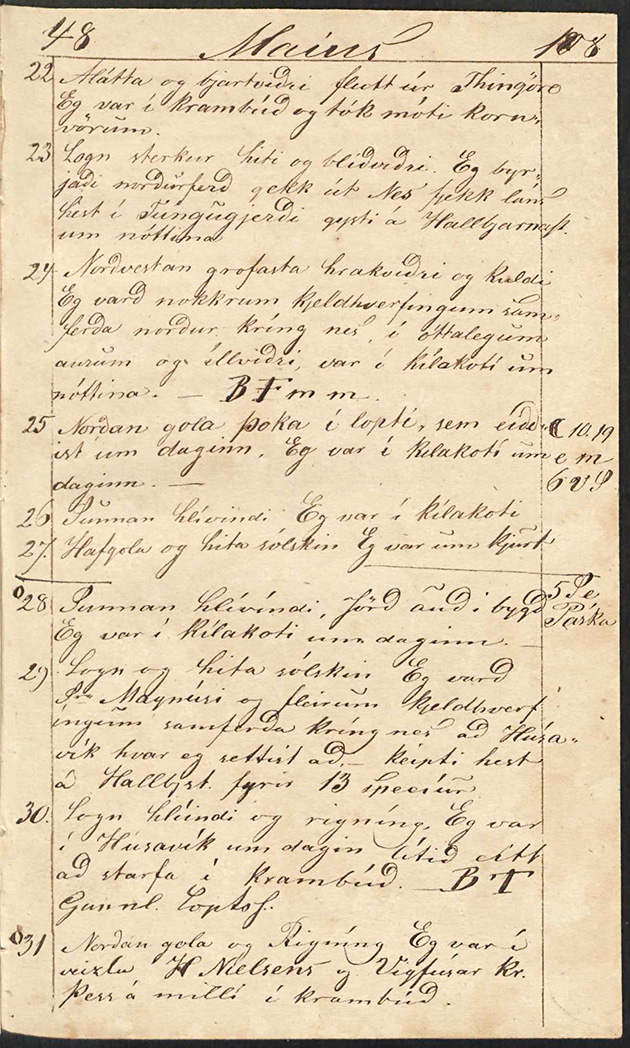 48 Maíus 108
22 Átátta og bjartvidri flutt úr Thingöre
Eg var i krambúd og tók móti korn-
vörum.
23 Logn sterkur hiti og blídvidri. Eg byr-
jadi nordurferd gekk út Nes fjekk láns
hest i Túngugjerdi gysti á Hallbjarnast.
um nóttina
24 Nordvestan grofasta hrakvidri og kuldi
Eg vard nokkrum Kjeldhverfingum sam-
ferda nordur kríng nes, i óttalegum
aurum og illvidri, var i Kílakoti um
nóttina. — B F m m.
25 Nordan gola þoka í lopti, sem eidd- ☾ 10.19
ist um daginn. Eg var i Kilakoti um e m
daginn. — 6 v S
26 Sunnan hlívindi Eg var i Kílakoti
27. Hafgola og hita sólskin Eg var um kjurt
28 Sunnan hlívíndi, Jörd aud i bygd 5 S e
Eg var i Kílakoti um daginn. — Páska
29 Logn og hita sólskin Eg vard
Sra Magnusi og fleirum Kjeldhverf
ingum samferda kríng nes ad Húsa-
vík hvar eg settist ad, — keipti hest
á Hallbjst. fyrir 13 speciur
30. Logn hlíindi og rigníng, Eg var
i Húsavík um dagin litid eitt
ad starfa i krambúd. — B T
Gunnl. Loptss.
31 Nordan gola og Rigníng Eg var i
veizlu H Nielsens og Vigfúsar Kr.
Þess á milli i krambúd.